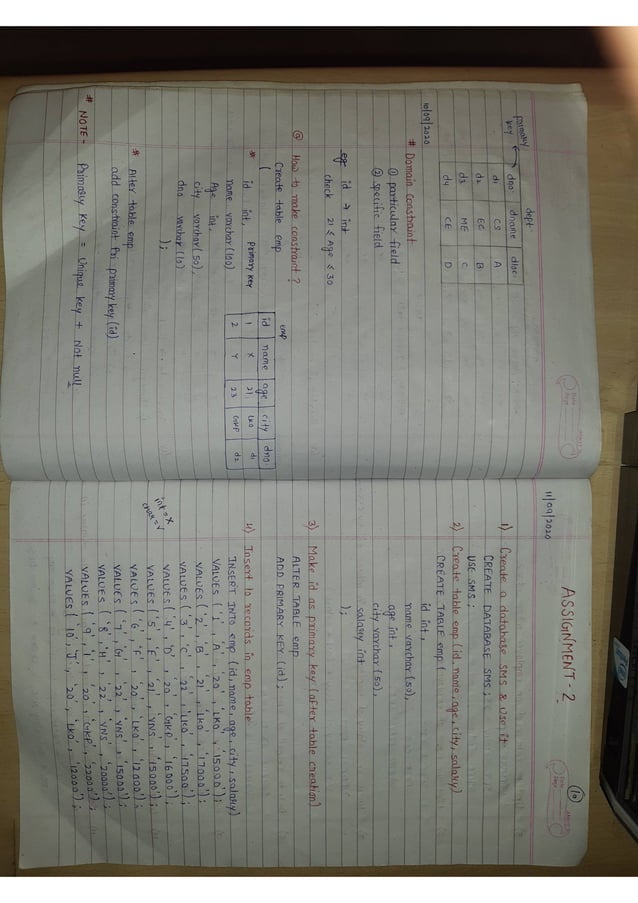 dept
primary key
dno dname dloc
d1 CS A
d2 EC B
d3 ME C
d4 CE D
10/09/2020
# Domain Constraint
① particular field
② specific field
eg id → int
check 21 ≤ Age ≤ 30
Q How to make constraint?
Create table emp
(
* id int, primary key
name varchar(100)
Age int,
city varchar(50),
dno varchar(10)
);
emp
id name age city dno
1 X 21 LKO d1
2 Y 23 GKP d2
* Alter table emp
add constraint Pri primary key (id)
# NOTE- Primary key = Unique key + Not null
11/09/2020
ASSIGNMENT-2
10
1) Create a database SMS & use it
CREATE DATABASE SMS;
USE SMS;
2) Create table emp (id, name, age, city, salary)
CREATE TABLE emp (
id int,
name varchar (50),
age int,
city varchar (50),
salary int
);
3) Make id as primary key (after table creation)
ALTER TABLE emp
ADD PRIMARY KEY (id);
4) Insert 10 records in emp table
int = X
char = ✓
INSERT INTO emp (id, name, age, city, salary)
VALUES ('1', 'A', '20', 'LKO', '15000');
VALUES ('2', 'B', '21', 'LKO', '17000');
VALUES ('3', 'C', '22', 'LKO', '17500');
VALUES ('4', 'D', '20', 'GKP', '16000');
VALUES ('5', 'E', '21', 'VNS', '15000');
VALUES ('6', 'F', '20', 'LKO', '12000');
VALUES ('7', 'G', '22', 'VNS', '15000');
VALUES ('8', 'H', '22', 'VNS', '20000');
VALUES ('9', 'I', '20', 'GKP', '22000');
VALUES ('10', 'J', '20', 'LKO', '12000');